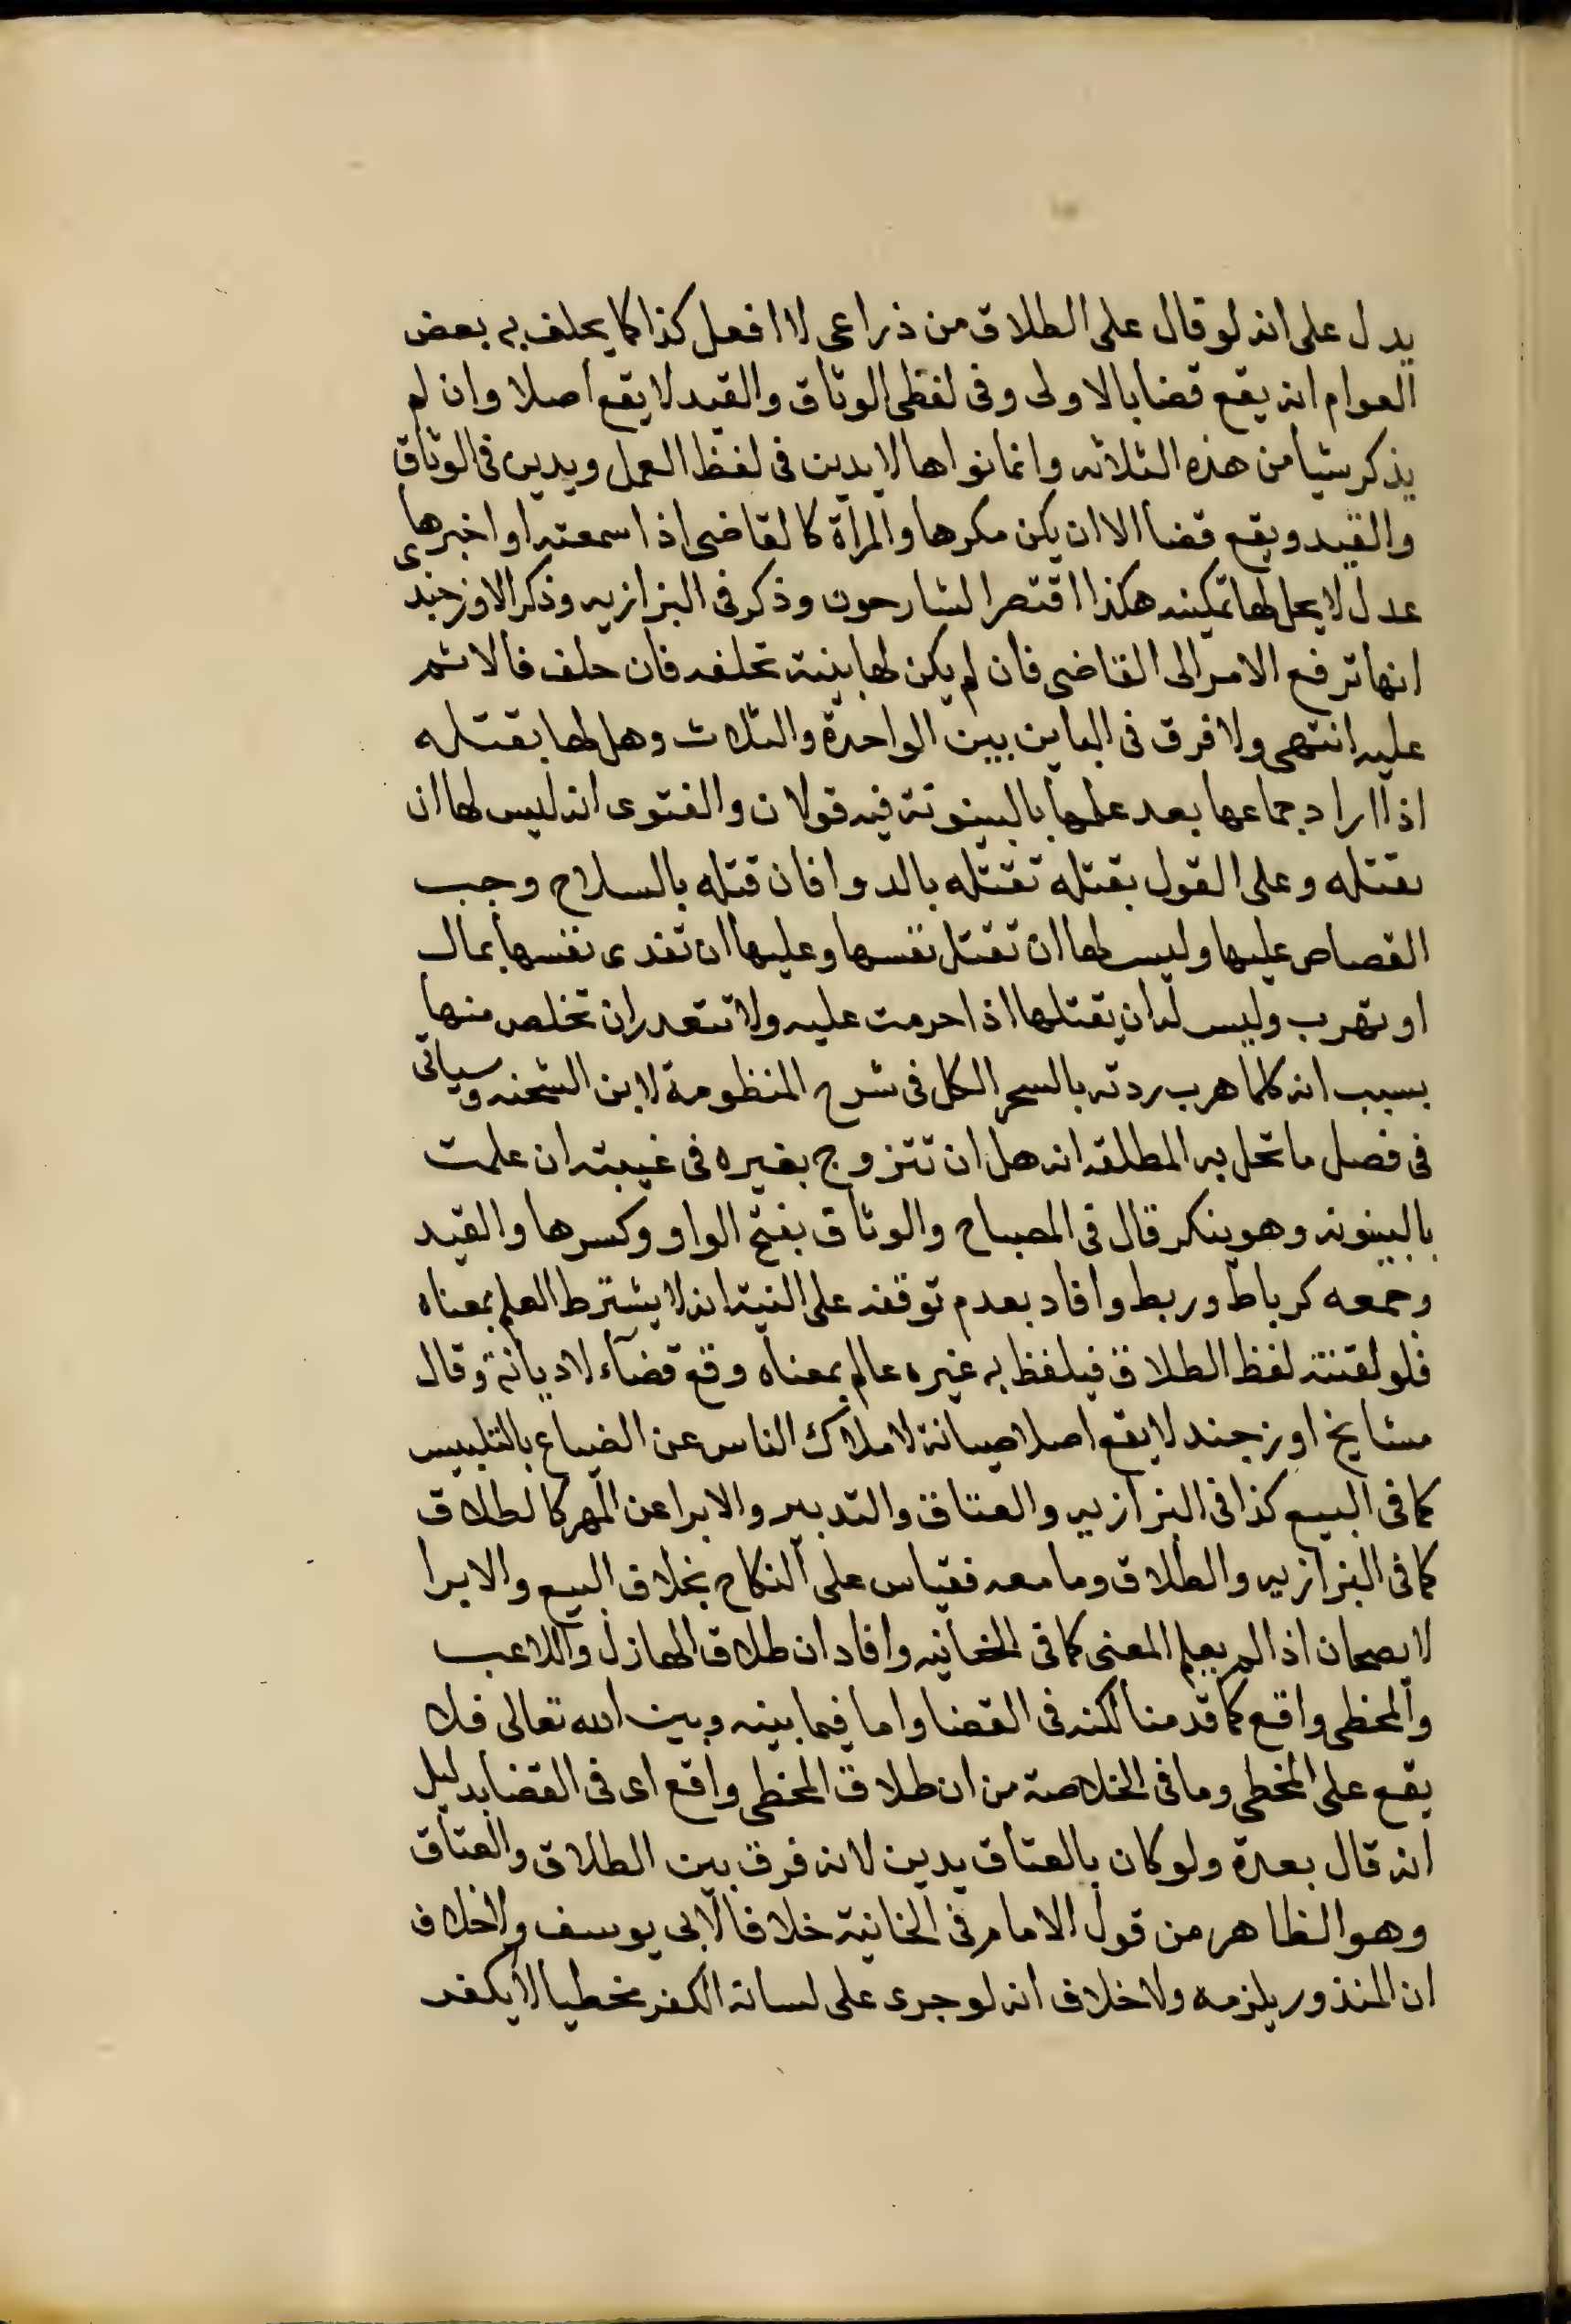 يدل على انه لو قال على الطلاق من ذراعى لا افعل كذا كما يحلف به بعض
العوام انه يقع قضا بالاولى وفى لفظى الوثاق والقيد لا يقع اصلا وان لم
يذكر شيأ من هذه الثلاثه وانما نواها لا يدين فى لفظ العمل ويدين فى الوثاق
والقيد ويقع قضا الا ان يكن مكرها والمرأة كالقاضى اذا سمعته او اخبرها
عدل لا يحل لها تمكينه هكذا اقتصر الشارحون وذكر فى البزازيه وذكر الاوزجند
ى
انها ترفع الامر الى القاضى فان لم يكن لها بينة تحلفه فان حلف فالاثم
عليه انتهى ولا فرق فى الباين بين الواحدة والثلاث وهل لها بقتله
اذا اراد جماعها بعد علمها بالبينونة فيه قولان والفتوى انه ليس لها ان
تقتله وعلى القول بقتله تقتله بالدوا فان قتله بالسلاح وجب
القصاص عليها وليس لها ان تقتل نفسها وعليها ان تفدى نفسها بمال
او تهرب وليس له ان يقتلها اذا حرمت عليه ولا تتعدر ان تخلص منها
بسبب انه كلما هرب ردته بالسحر الكل فى شرح المنظومة لابن الشحنه وسياتى
فى فصل ما تحل به المطلقه انه هل ان تتزوج بغيره فى غيبته ان علمت
بالبينونه وهو ينكر قال فى المصباح والوثاق بفتح الواو وكسرها والقيد
وجمعه كرباط وربط وافاد بعدم توقفه على النية انه لا يشترط العلم بمعناه
فلو لقنته لفظ الطلاق فيلفظ به غيره عالم بمعناه وقع قضآء لا ديانة وقال
مشايخ اوزجند لا يقع اصلا صيانة لاملاك الناس عن الضياع بالتلبيس
كما فى البيع كذا فى البزازيه والعتاق والتدبير والابرا عن المهر كالطلاق
كما فى البزازيه والطلاق وما معه فقياس على النكاح بخلاف البيع والابرا
لا يصحان اذا لم يعلم المعنى كما فى الخانيه وافاد ان طلاق الهازل واللاعب
والمخطى واقع كما قدمنا لكنه فى القضا واما فيما بينه وبين الله تعالى فلا
يقع على المخطى وما فى الخلاصة من ان طلاق المخطى واقع اى فى القضا بدليل
انه قال بعده ولو كان بالعتاق يدين لانه فرق بين الطلاق والعتاق
وهو الظاهر من قول الامام فى الخانية خلافا لابى يوسف ولا خلاف
ان المنذور يلزمه ولا خلاف انه لو جرى على لسانه الكفر مخطيا لا يكفر